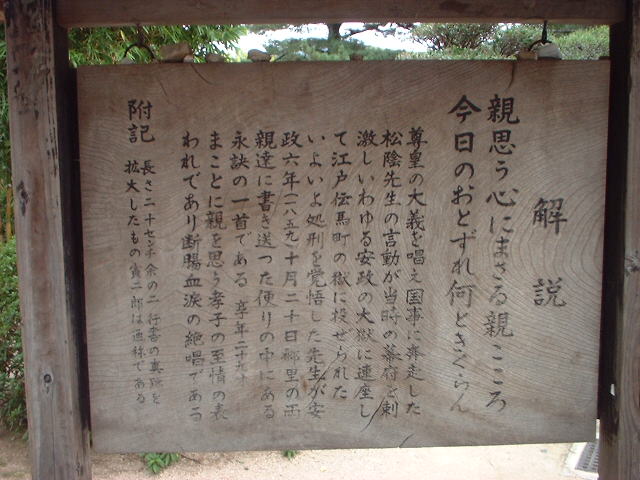 解説
親思う心にまさる親こころ
今日のおとずれ何ときくらん
尊皇の大義を唱え国事に奔走した
松陰先生の言動が当時の幕府を刺
激しいわゆる安政の大獄に連座し
て江戸伝馬町の獄に投ぜられた
いよいよ処刑を覚悟した先生が安
政六年(一八五九)十月二十日郷里の両
親達に書き送った便りの中にある
永訣の一首である 享年二十九才
まことに親を思う孝子の至情の表
われであり断腸血涙の絶唱である
附記 長さ二十センチ余の二行書の真跡を
拡大したもの 寅二郎は通称である